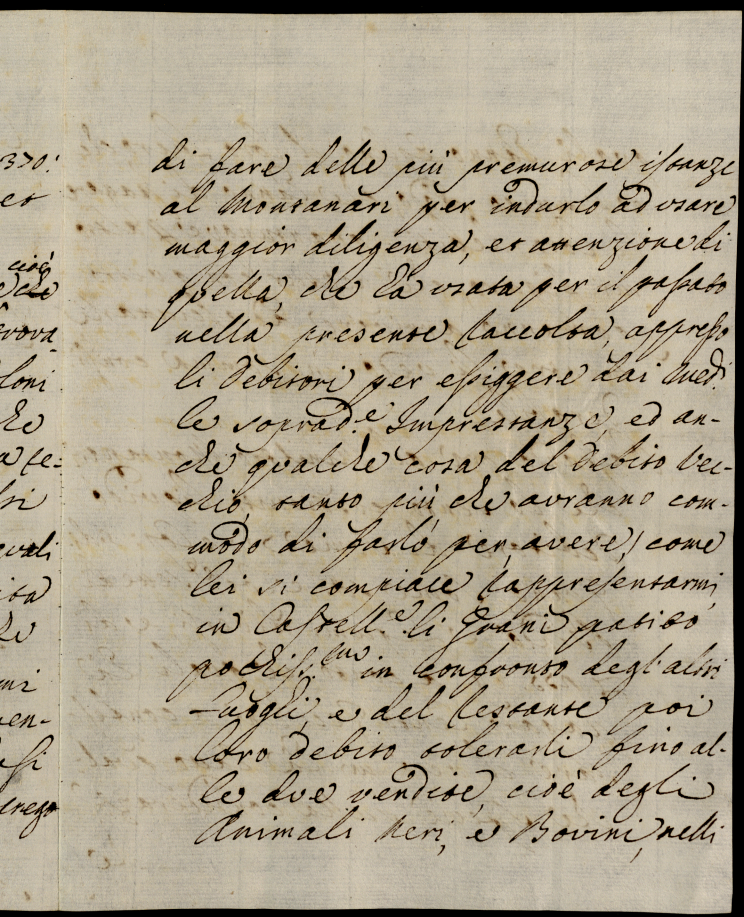 370:
et
cioè
e che
trova
loni
che
a (e-
ssi
avali
ita
he
mi
uen-
lassi
prego
di fare delle più premurose istanze
al Montanari per indurlo ad usare
maggior diligenza, et attenzione di
quella, che hà usata per il passato
nella presente raccolta, appresso
li debitori per essiggere dai med.
le soprad.e Imprestanze, ed an-
che qualche cosa del debito vec-
chio, tanto più che avranno com-
modo di farlo per avere, come
lei si compiace rappresentarmi,
in Castell.e li grani patito
pochiss.mo in confronto degl'altri
Luoghi, e del restante poi
loro debito tolerarli fino al-
le due vendite, cioè degli
Animali Neri, e Bovini, nelli